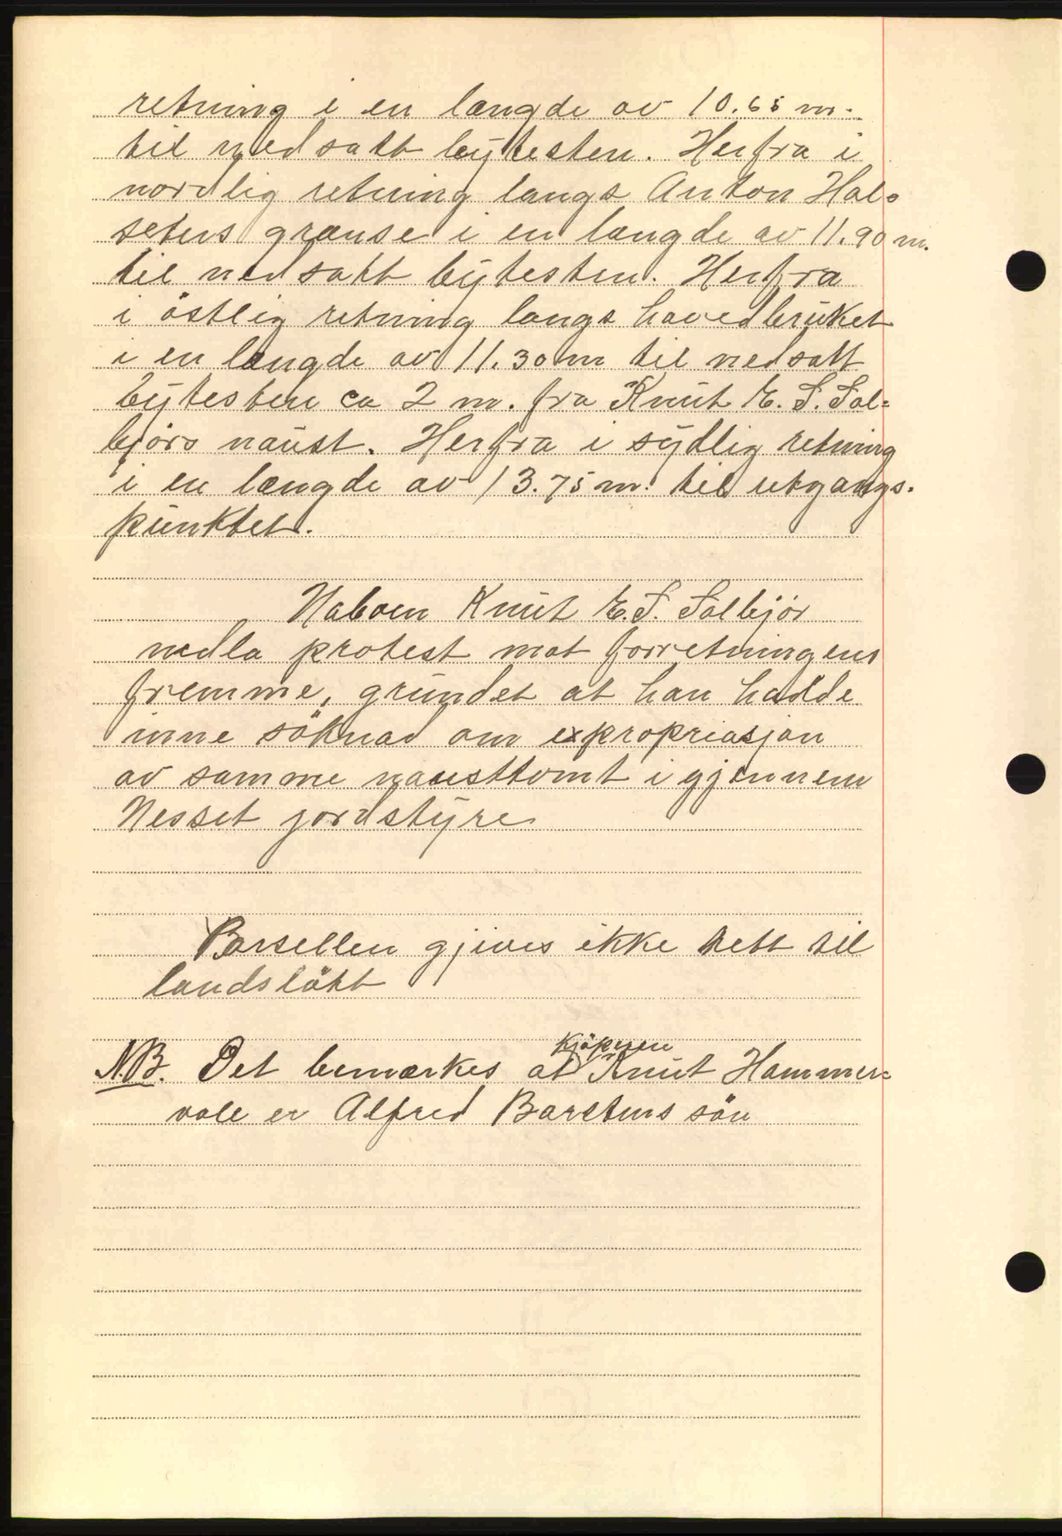 retning i en længde av 10.65 m.
til nedsatt bytesten. Herfra i
nordlig retning langs Anton Hal-
seters grænse i en længde av 11.90 m.
til nedsatt bytesten. Herfra
i östlig retning langs hovedbruket
i en længde av 11.30 m til nedsatt
bytesten ca 2 m. fra Knut E. S. Sol=
björs naust. Herfra i sydlig retning
i en længde av 13.75 m. til utgangs-
punktet.
Naboen Knut E. S. Solbjör
nedla protest mot forretningens
fremme, grundet at han hadde
inne söknad om expropriasjon
av samme nausttomt igjennem
Nesset jordstyre
Parsellen gjives ikke rett til
landslått
kjöperen
N.B. Det bemærkes at Knut Hammer=
vold er Alfred Barstens sön